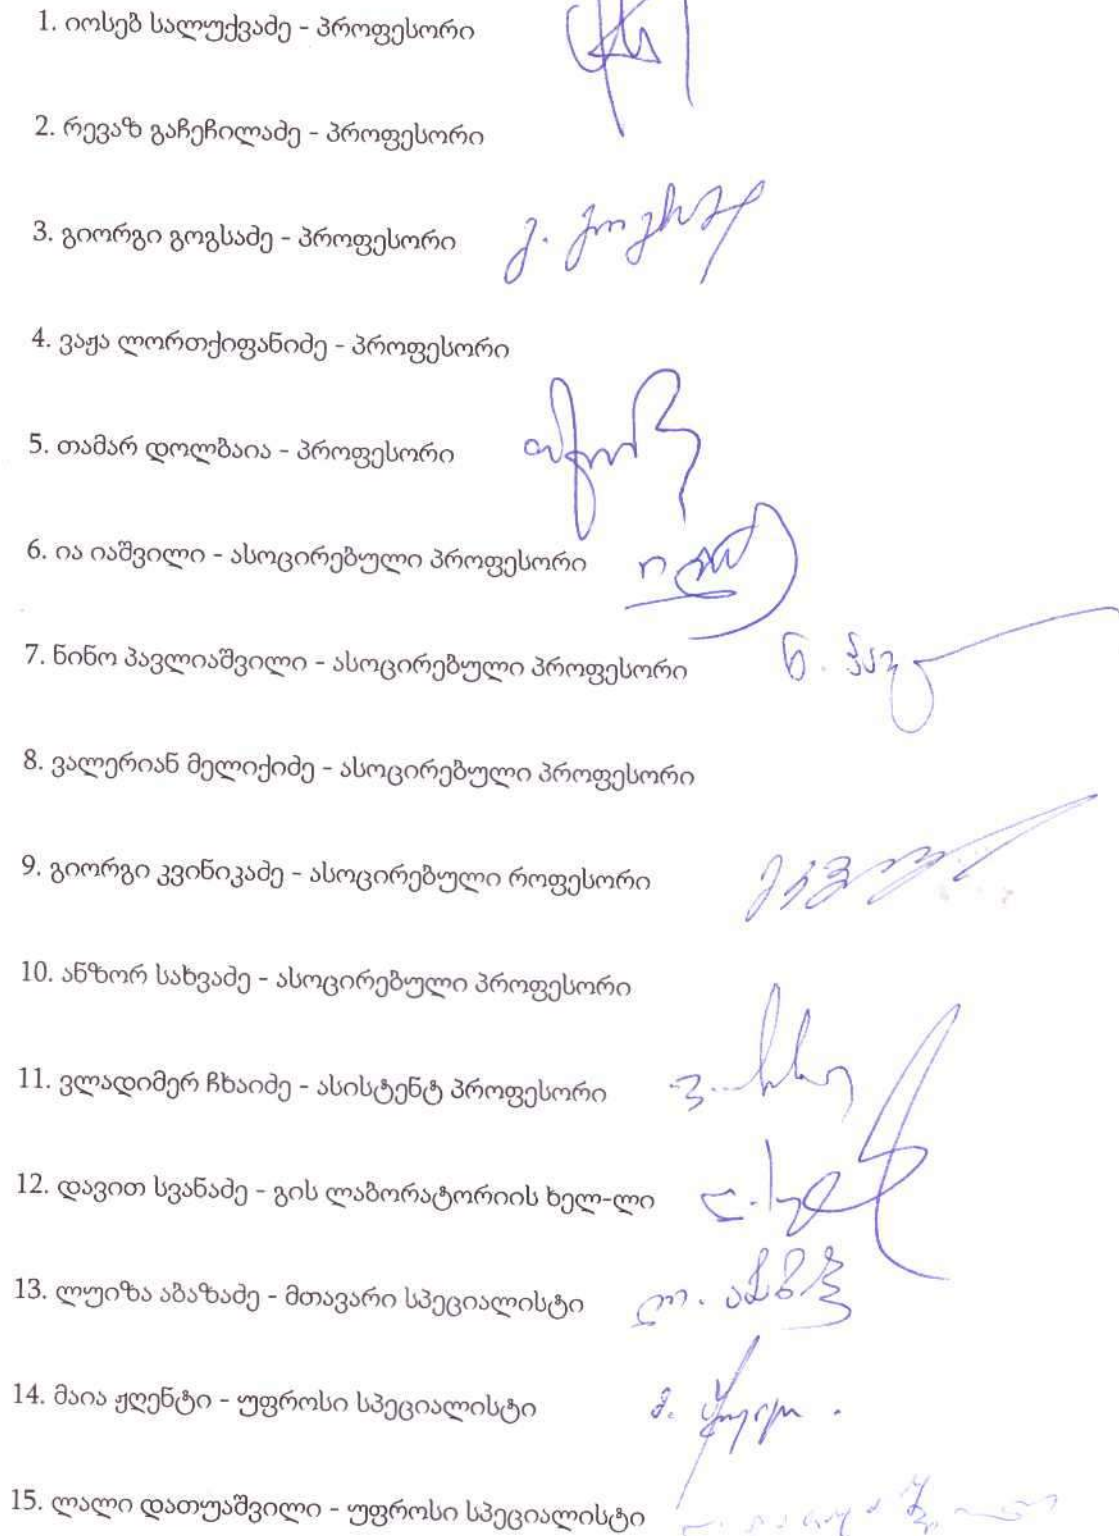 1. იოსებ სალუქვაძე - პროფესორი
2. რევაზ გაჩეჩილაძე - პროფესორი
3. გიორგი გოგსაძე - პროფესორი
4. ვაჟა ლორთქიფანიძე - პროფესორი
5. თამარ დოლბაია - პროფესორი
6. ია იაშვილი - ასოცირებული პროფესორი
7. ნინო პავლიაშვილი - ასოცირებული პროფესორი
8. ვალერიან მელიქიძე - ასოცირებული პროფესორი
9. გიორგი კვინიკაძე - ასოცირებული როფესორი
10. ანზორ სახვაძე - ასოცირებული პროფესორი
11. ვლადიმერ ჩხაიძე - ასისტენტ პროფესორი
12. დავით სვანაძე - გის ლაბორატორიის ხელ-ლი
13. ლუიზა აბაზაძე - მთავარი სპეციალისტი
14. მაია ჟღენტი - უფროსი სპეციალისტი
15. ლალი დათუაშვილი - უფროსი სპეციალისტი